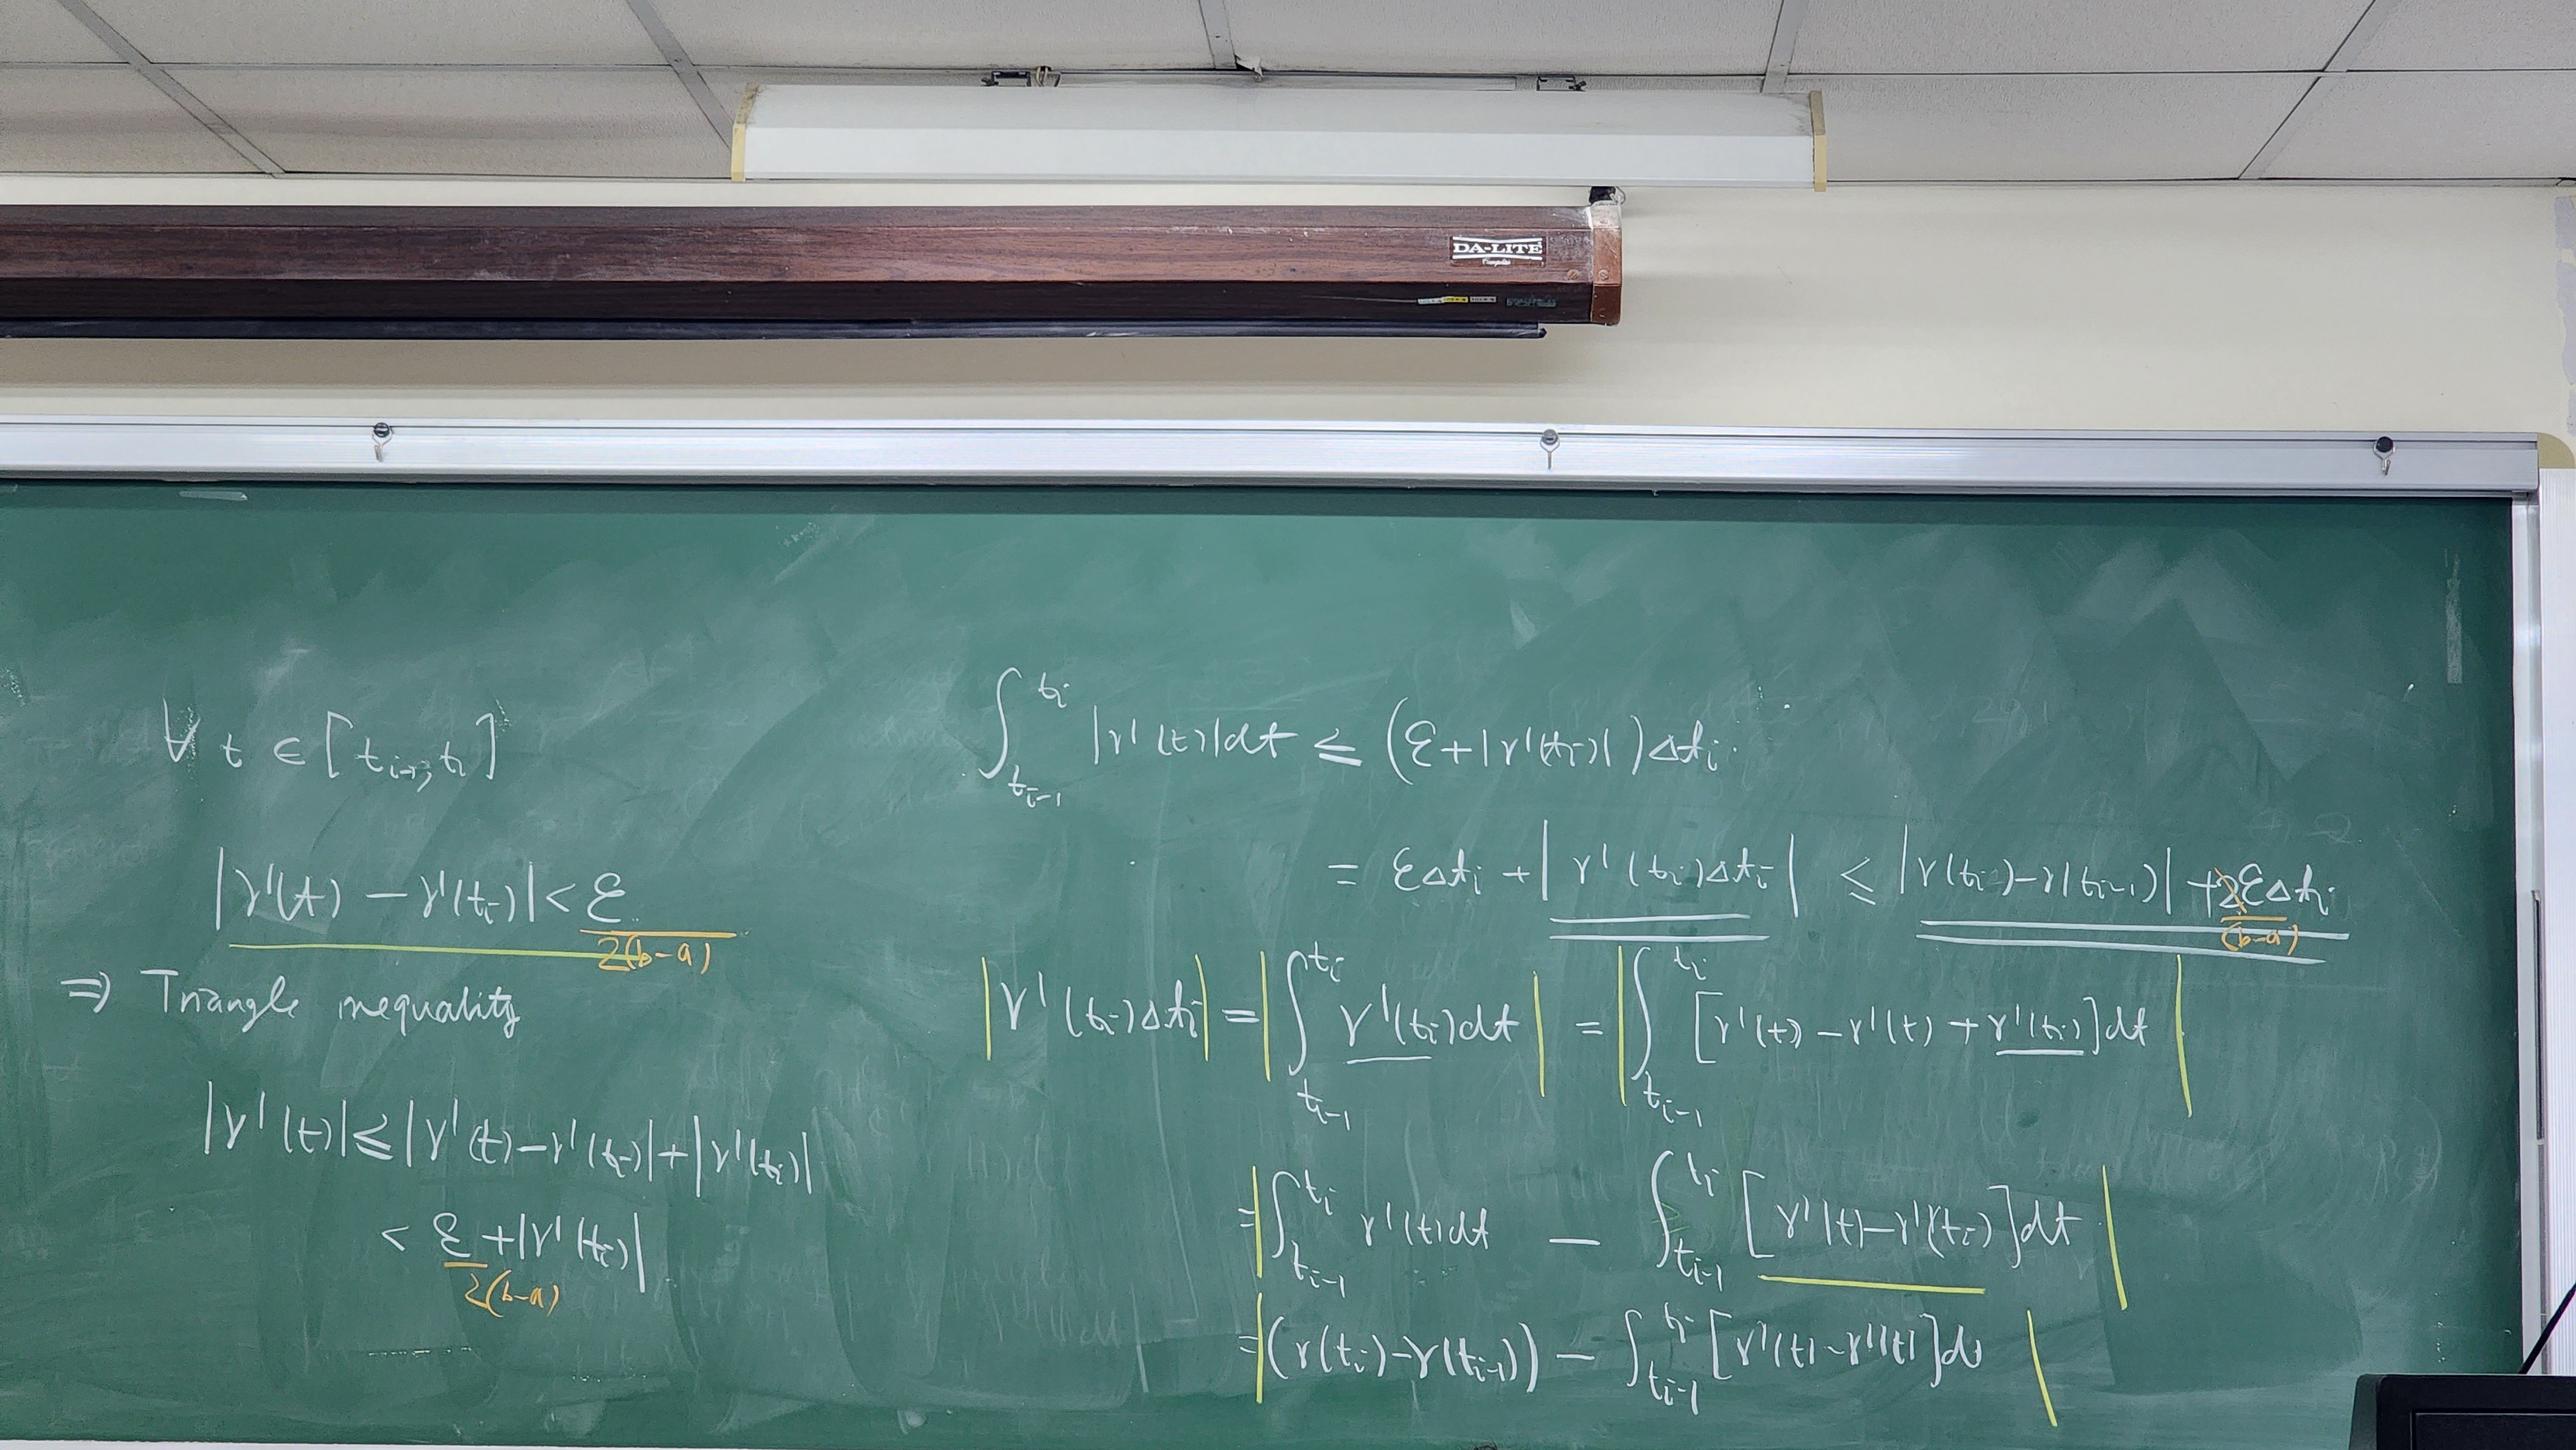 DA-LITE
∀ t ∈ [t_{i-1}, t_i]
|γ'(t) − γ'(t_i)| < ε / 2(b−a)
⇒ Triangle inequality
|γ'(t)| ≤ |γ'(t) − γ'(t_i)| + |γ'(t_i)|
< ε / 2(b−a) + |γ'(t_i)|
∫_{t_{i-1}}^{t_i} |γ'(t)| dt ≤ (ε + |γ'(t_i)|) Δt_i
= ε Δt_i + |γ'(t_i) Δt_i| ≤ |γ(t_i) − γ(t_{i-1})| + 2ε Δt_i / (b−a)
|γ'(t_i) Δt_i| = |∫_{t_{i-1}}^{t_i} γ'(t_i) dt| = |∫_{t_{i-1}}^{t_i} [γ'(t) − γ'(t) + γ'(t_i)] dt|
= |∫_{t_{i-1}}^{t_i} γ'(t) dt − ∫_{t_{i-1}}^{t_i} [γ'(t) − γ'(t_i)] dt|
= |(γ(t_i) − γ(t_{i-1})) − ∫_{t_{i-1}}^{t_i} [γ'(t) − γ'(t)] dt|